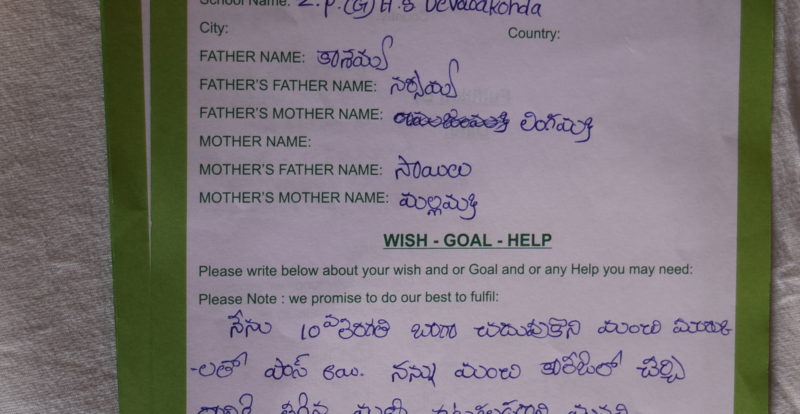 School Name: Z.P.(G) H.S Devarakonda
City:
Country:
FATHER NAME: కాశయ్య
FATHER'S FATHER NAME: నర్సయ్య
FATHER'S MOTHER NAME: లింగమ్మ
MOTHER NAME:
MOTHER'S FATHER NAME: సాయిలు
MOTHER'S MOTHER NAME: మల్లమ్మ
WISH - GOAL - HELP
Please write below about your wish and or Goal and or any Help you may need:
Please Note : we promise to do our best to fulfil:
నేను 10వ తరగతి బాగా చదువుకొని మంచి మార్కు
-లతో పాస్ అయి. నన్ను మంచి కాలేజీలో చేర్చి